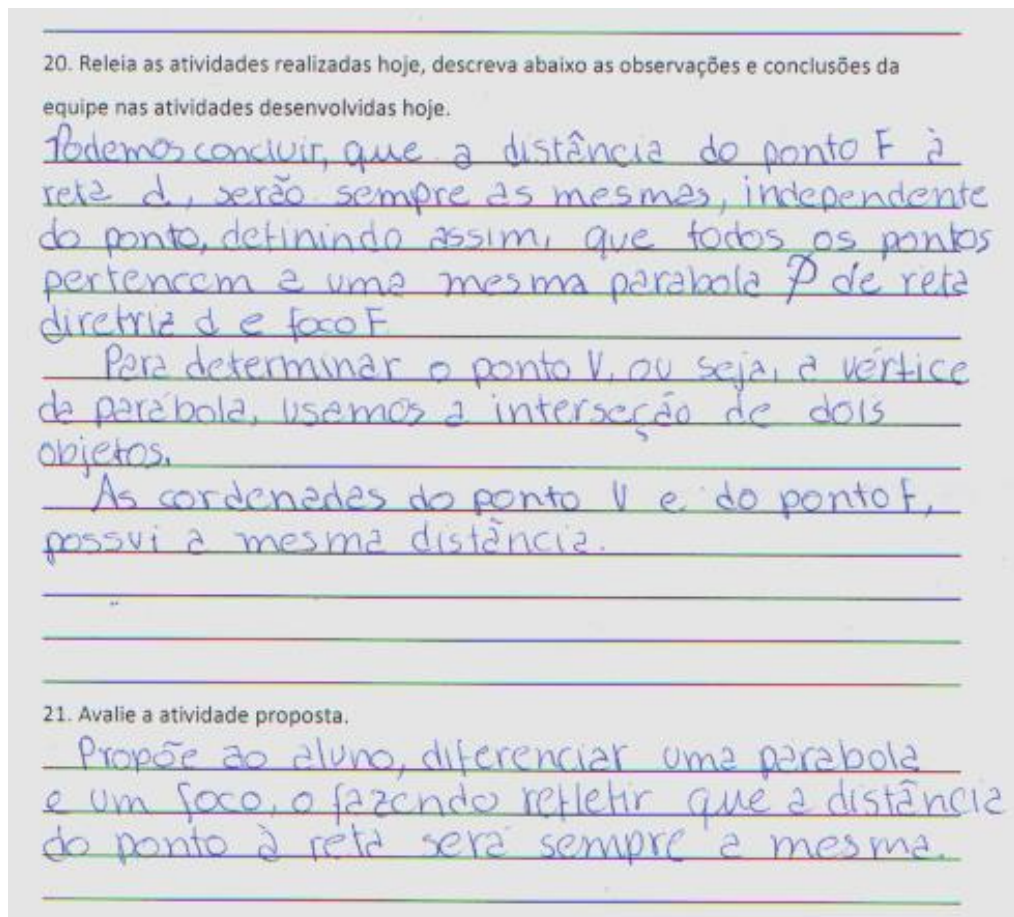 20. Releia as atividades realizadas hoje, descreva abaixo as observações e conclusões da
equipe nas atividades desenvolvidas hoje.
Podemos concluir, que a distância do ponto F à
reta d, serão sempre as mesmas, independente
do ponto, definindo assim, que todos os pontos
pertencem a uma mesma parabola P de reta
diretriz d e foco F
Para determinar o ponto V, ou seja, a vértice
da parábola, usamos a interseção de dois
objetos.
As cordenadas do ponto V e do ponto F,
possui a mesma distância.
21. Avalie a atividade proposta.
Propõe ao aluno, diferenciar uma parabola
e um foco, o fazendo refletir que a distância
do ponto à reta será sempre a mesma.